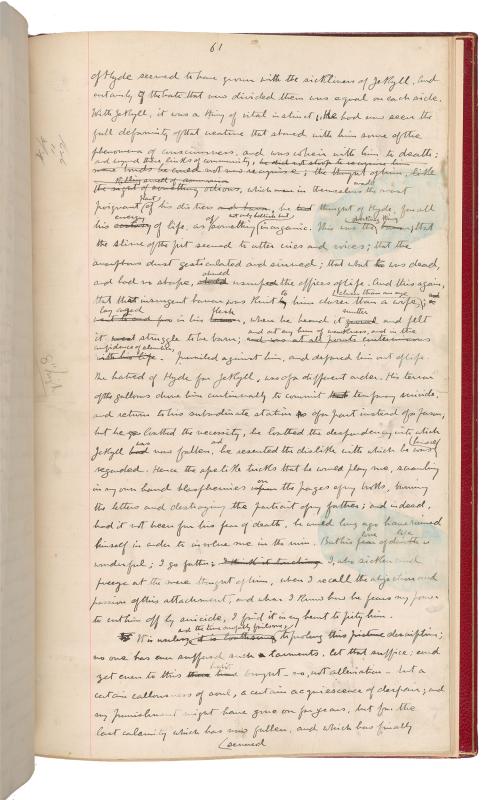 61
of Hyde seemed to have grown with the sickliness of Jekyll. And
certainly the hate that now divided them was equal on each side.
With Jekyll, it was a thing of vital instinct. He had now seen the
full deformity of that creature that shared with him some of the
phenomena of consciousness, and was coheir with him to death;
and beyond these links of community, he did not
bonds he could not now recognise; the thought of him, like
the sight of, which in themselves made the most
poignant part of his distress, he thought of Hyde, for all
energy of not only hellish but
his of life, as something inorganic. This was the shocking thing that
the slime of the pit seemed to utter cries and voices; that the
amorphous dust gesticulated and sinned; that what was dead,
and had no shape, should usurp the offices of life. And this again,
closer than an eye
that that insurgent horror was knit to him closer than a wife,
lay caged flesh mutter
in his, where he heard it and felt
it struggle to be born; and at every hour of weakness, and in the
confidence of slumber
prevailed against him, and deposed him out of life.
The hatred of Hyde for Jekyll, was of a different order. His terror
of the gallows drove him continually to commit temporary suicide,
and return to his subordinate station of a part instead of a person,
but he loathed the necessity, he loathed the despondency into which
Jekyll was now fallen, and he resented the dislike with which he was himself
regarded. Hence the apelike tricks that he would play me, scrawling
in my own hand blasphemies on the pages of my books, burning
the letters and destroying the portrait of my father; and indeed,
had it not been for his fear of death, he would long ago have ruined
himself in order to involve me in the ruin. But his love of life is
wonderful; I go further, I think it touching I, who sicken and
freeze at the mere thought of him, when I recall the abjection and
passion of this attachment, and when I know how he fears my power
to cut him off by suicide, I find it in my heart to pity him.
and the time awfully fails me,
It is useless, it is to prolong this description;
no one has ever suffered such torments, let that suffice; and
yet even to this habit brought - no, not alleviation - but a
certain callousness of soul, a certain acquiescence of despair; and
my punishment might have gone on for years, but for the
last calamity which has now fallen, and which has finally
severed